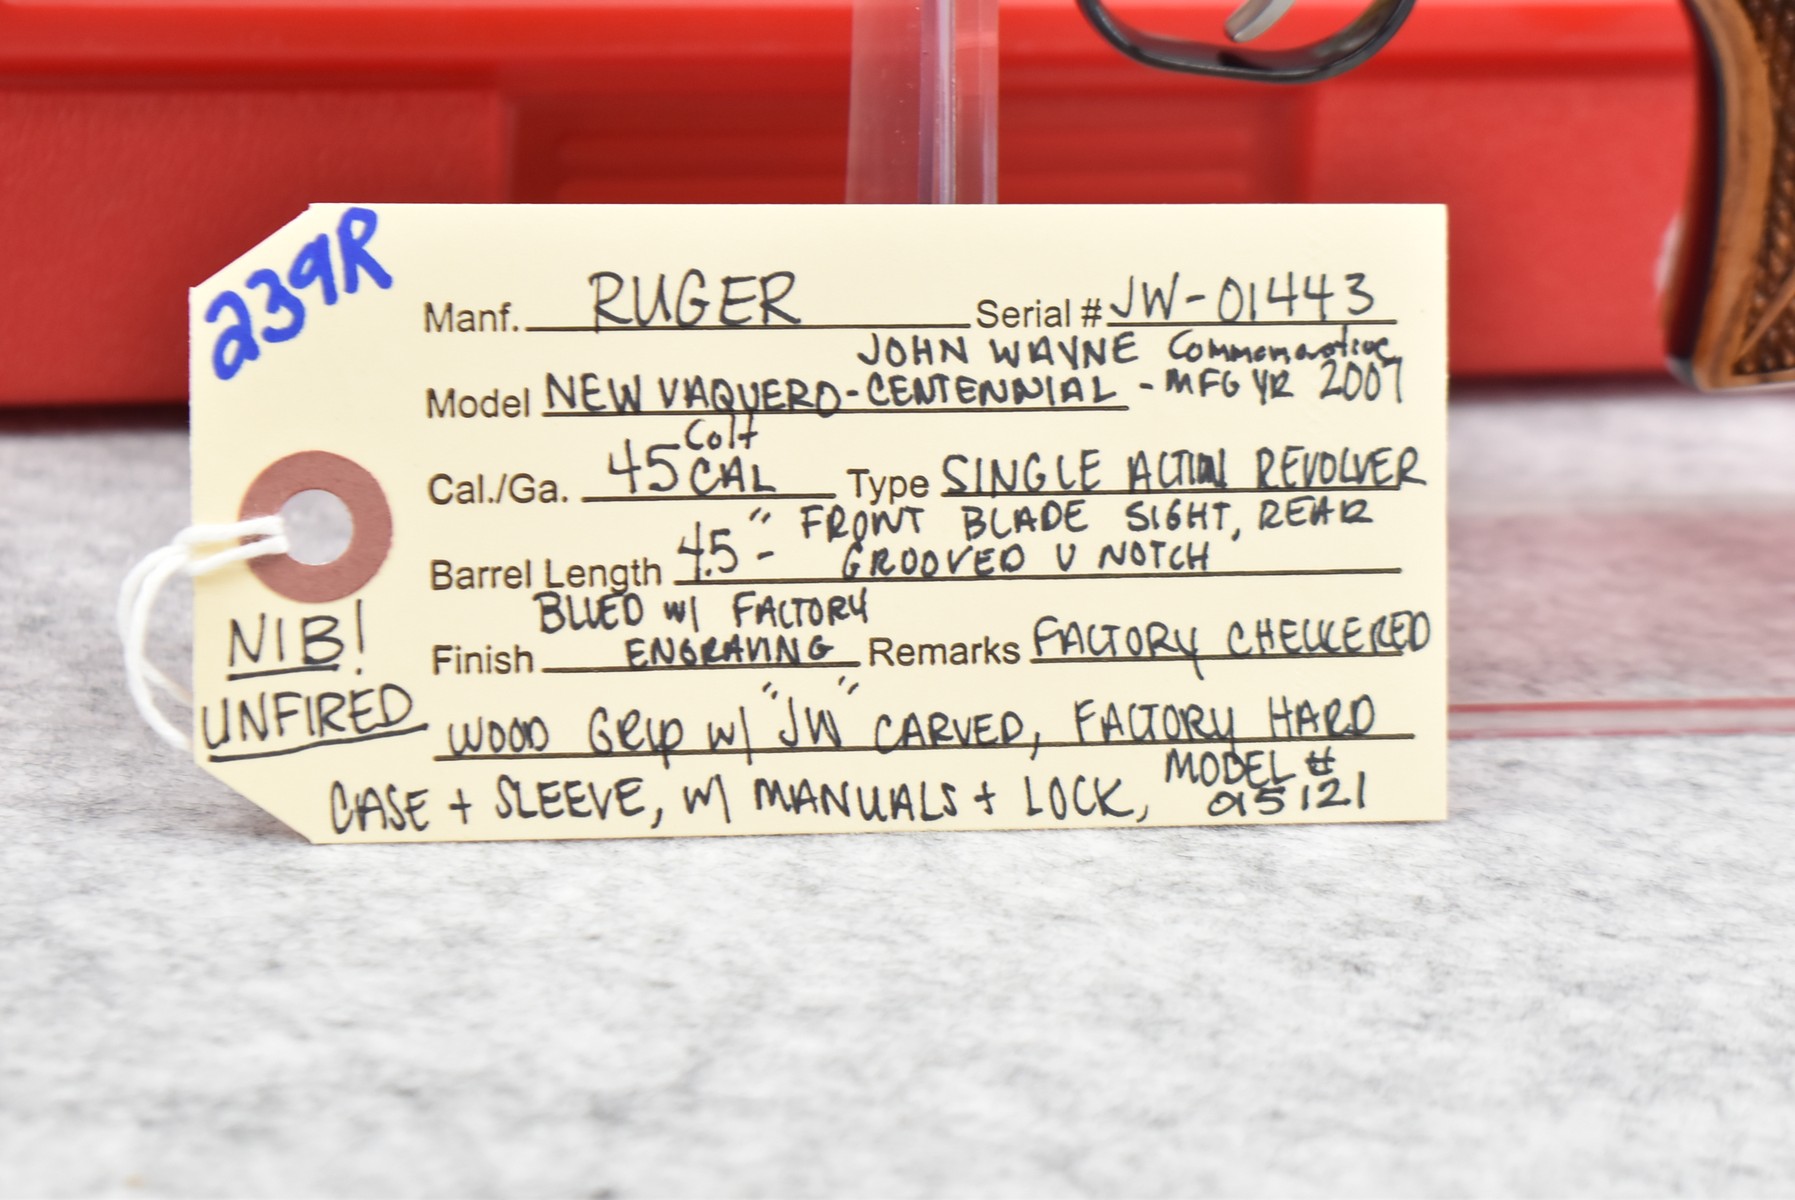 239R
Manf. RUGER Serial # JW-01443
JOHN WAYNE Commemorative
Model NEW VAQUERO-CENTENNIAL - MFG YR 2007
Colt
Cal./Ga. 45 CAL Type SINGLE ACTION REVOLVER
FRONT BLADE SIGHT, REAR
Barrel Length 4.5" - GROOVED V NOTCH
BLUED w/ FACTORY
Finish ENGRAVING Remarks FACTORY CHECKERED
NIB!
UNFIRED
WOOD GRIP w/ "JW" CARVED, FACTORY HARD
CASE + SLEEVE, w/ MANUALS + LOCK, MODEL #
015121